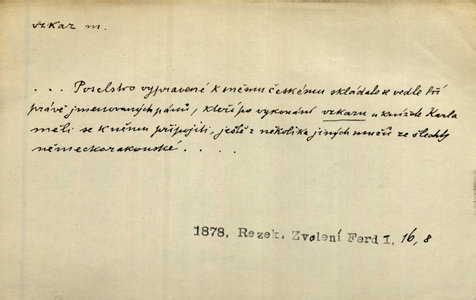 vzkaz m.
... Poselstvo vypravené k sněmu českému skládalo se vedle tří
právě jmenovaných pánů, kteří po vykonání vzkazu u knížete Karla
měli se k němu připojiti, ještě z několika jiných mužů ze šlechty
německorakouské.....
1878, Rezek, Zvolení Ferd I, 16, 8